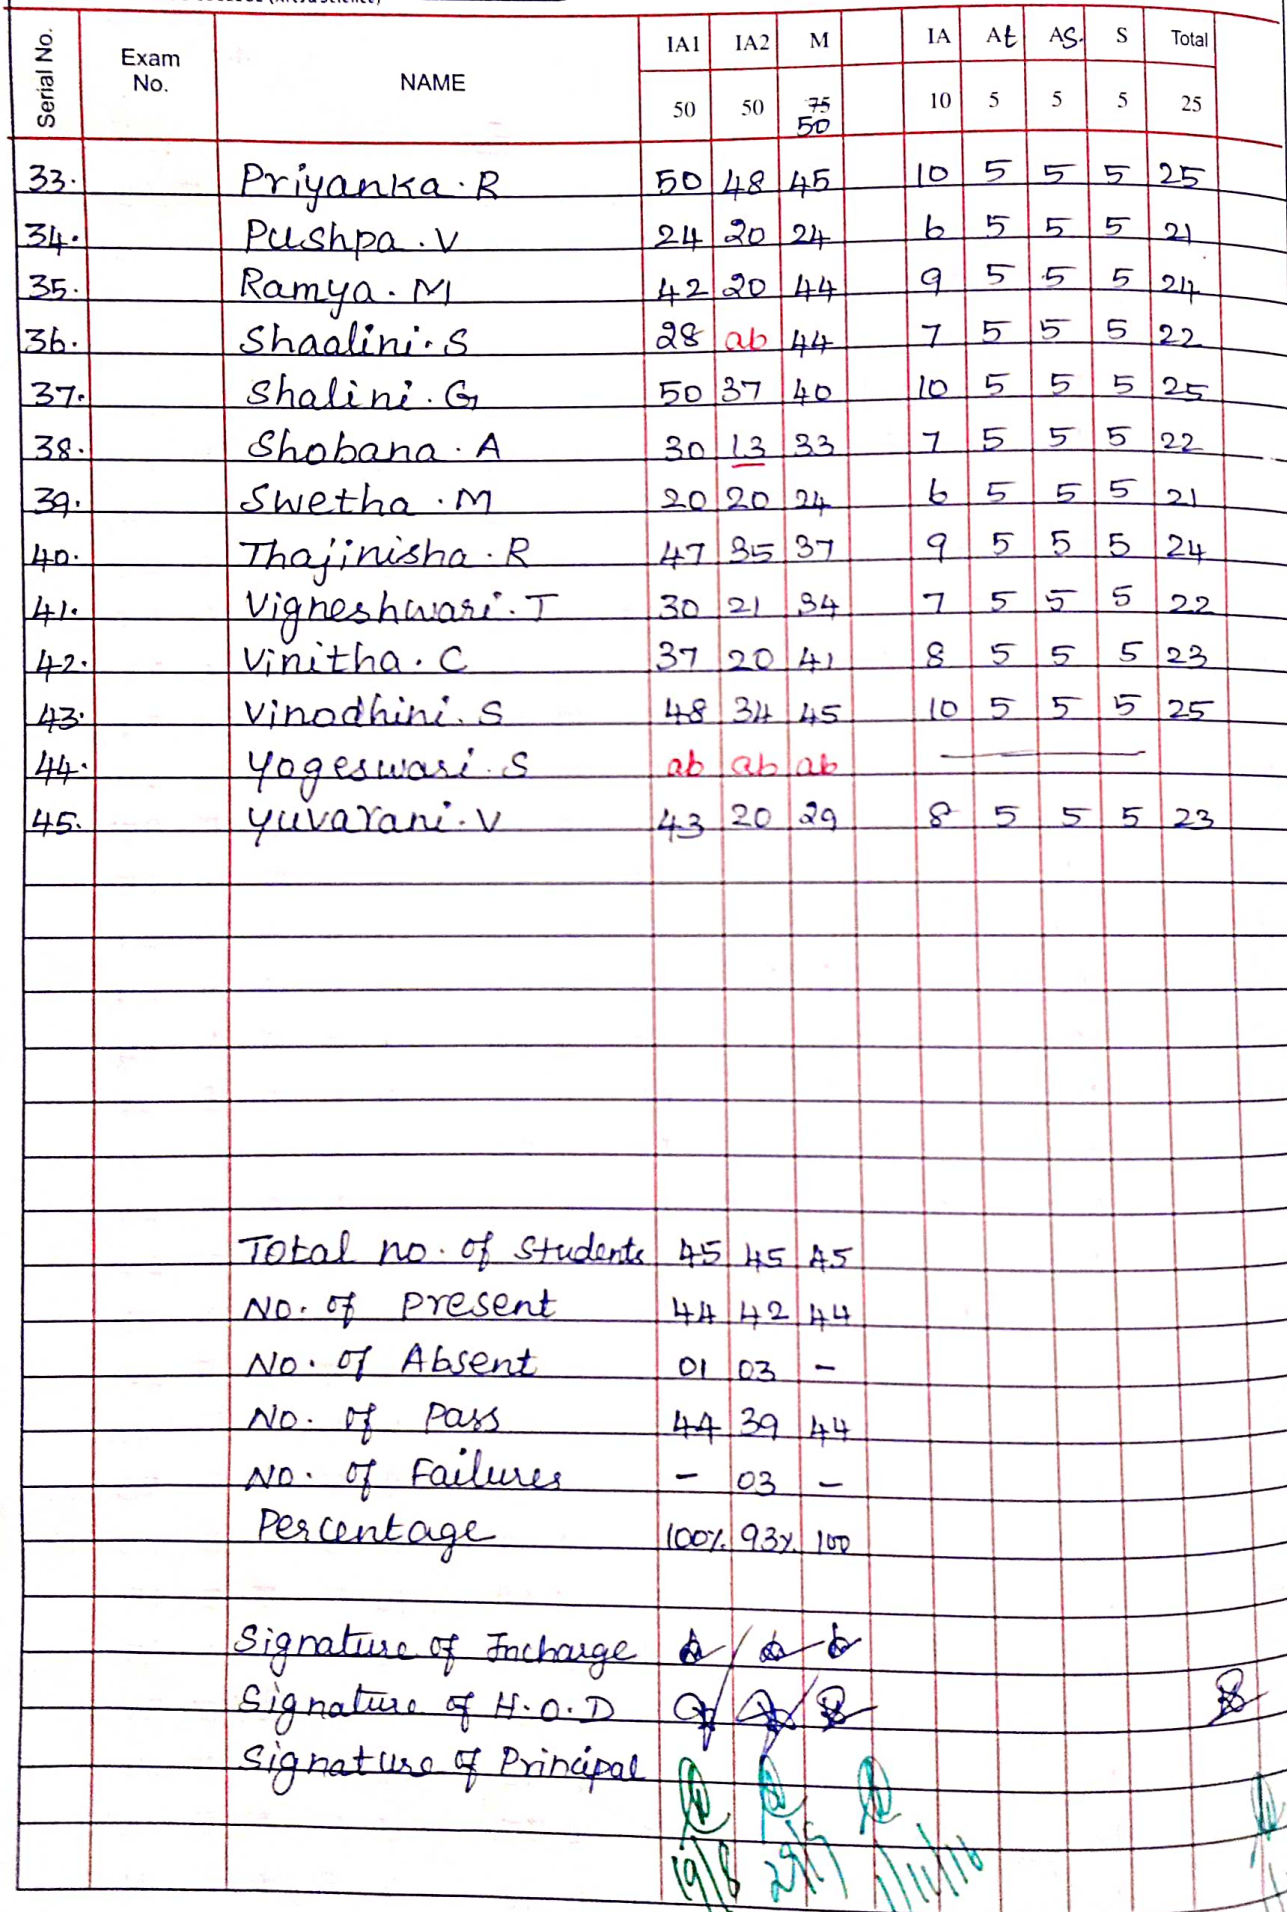 Serial No. Exam No. NAME IA1 IA2 M IA At As. S Total
50 50 75 10 5 5 5 25
50
33. Priyanka. R 50 48 45 10 5 5 5 25
34. Pushpa. V 24 20 24 6 5 5 5 21
35. Ramya. M 42 20 44 9 5 5 5 24
36. Shaalini. S 28 ab 44 7 5 5 5 22
37. Shalini. G 50 37 40 10 5 5 5 25
38. Shobana. A 30 13 33 7 5 5 5 22
39. Swetha. M 20 20 24 6 5 5 5 21
40. Thajinisha. R 47 35 37 9 5 5 5 24
41. Vigneshwari. T 30 21 34 7 5 5 5 22
42. Vinitha. C 37 20 41 8 5 5 5 23
43. Vinodhini. S 48 34 45 10 5 5 5 25
44. Yogeswari. S ab ab ab —
45. Yuvarani. V 43 20 29 8 5 5 5 23
Total no. of Students 45 45 45
No. of Present 44 42 44
No. of Absent 01 03 -
No. of Pass 44 39 44
No. of Failures - 03 -
Percentage 100% 93% 100
Signature of Incharge
Signature of H.O.D
Signature of Principal
19/8